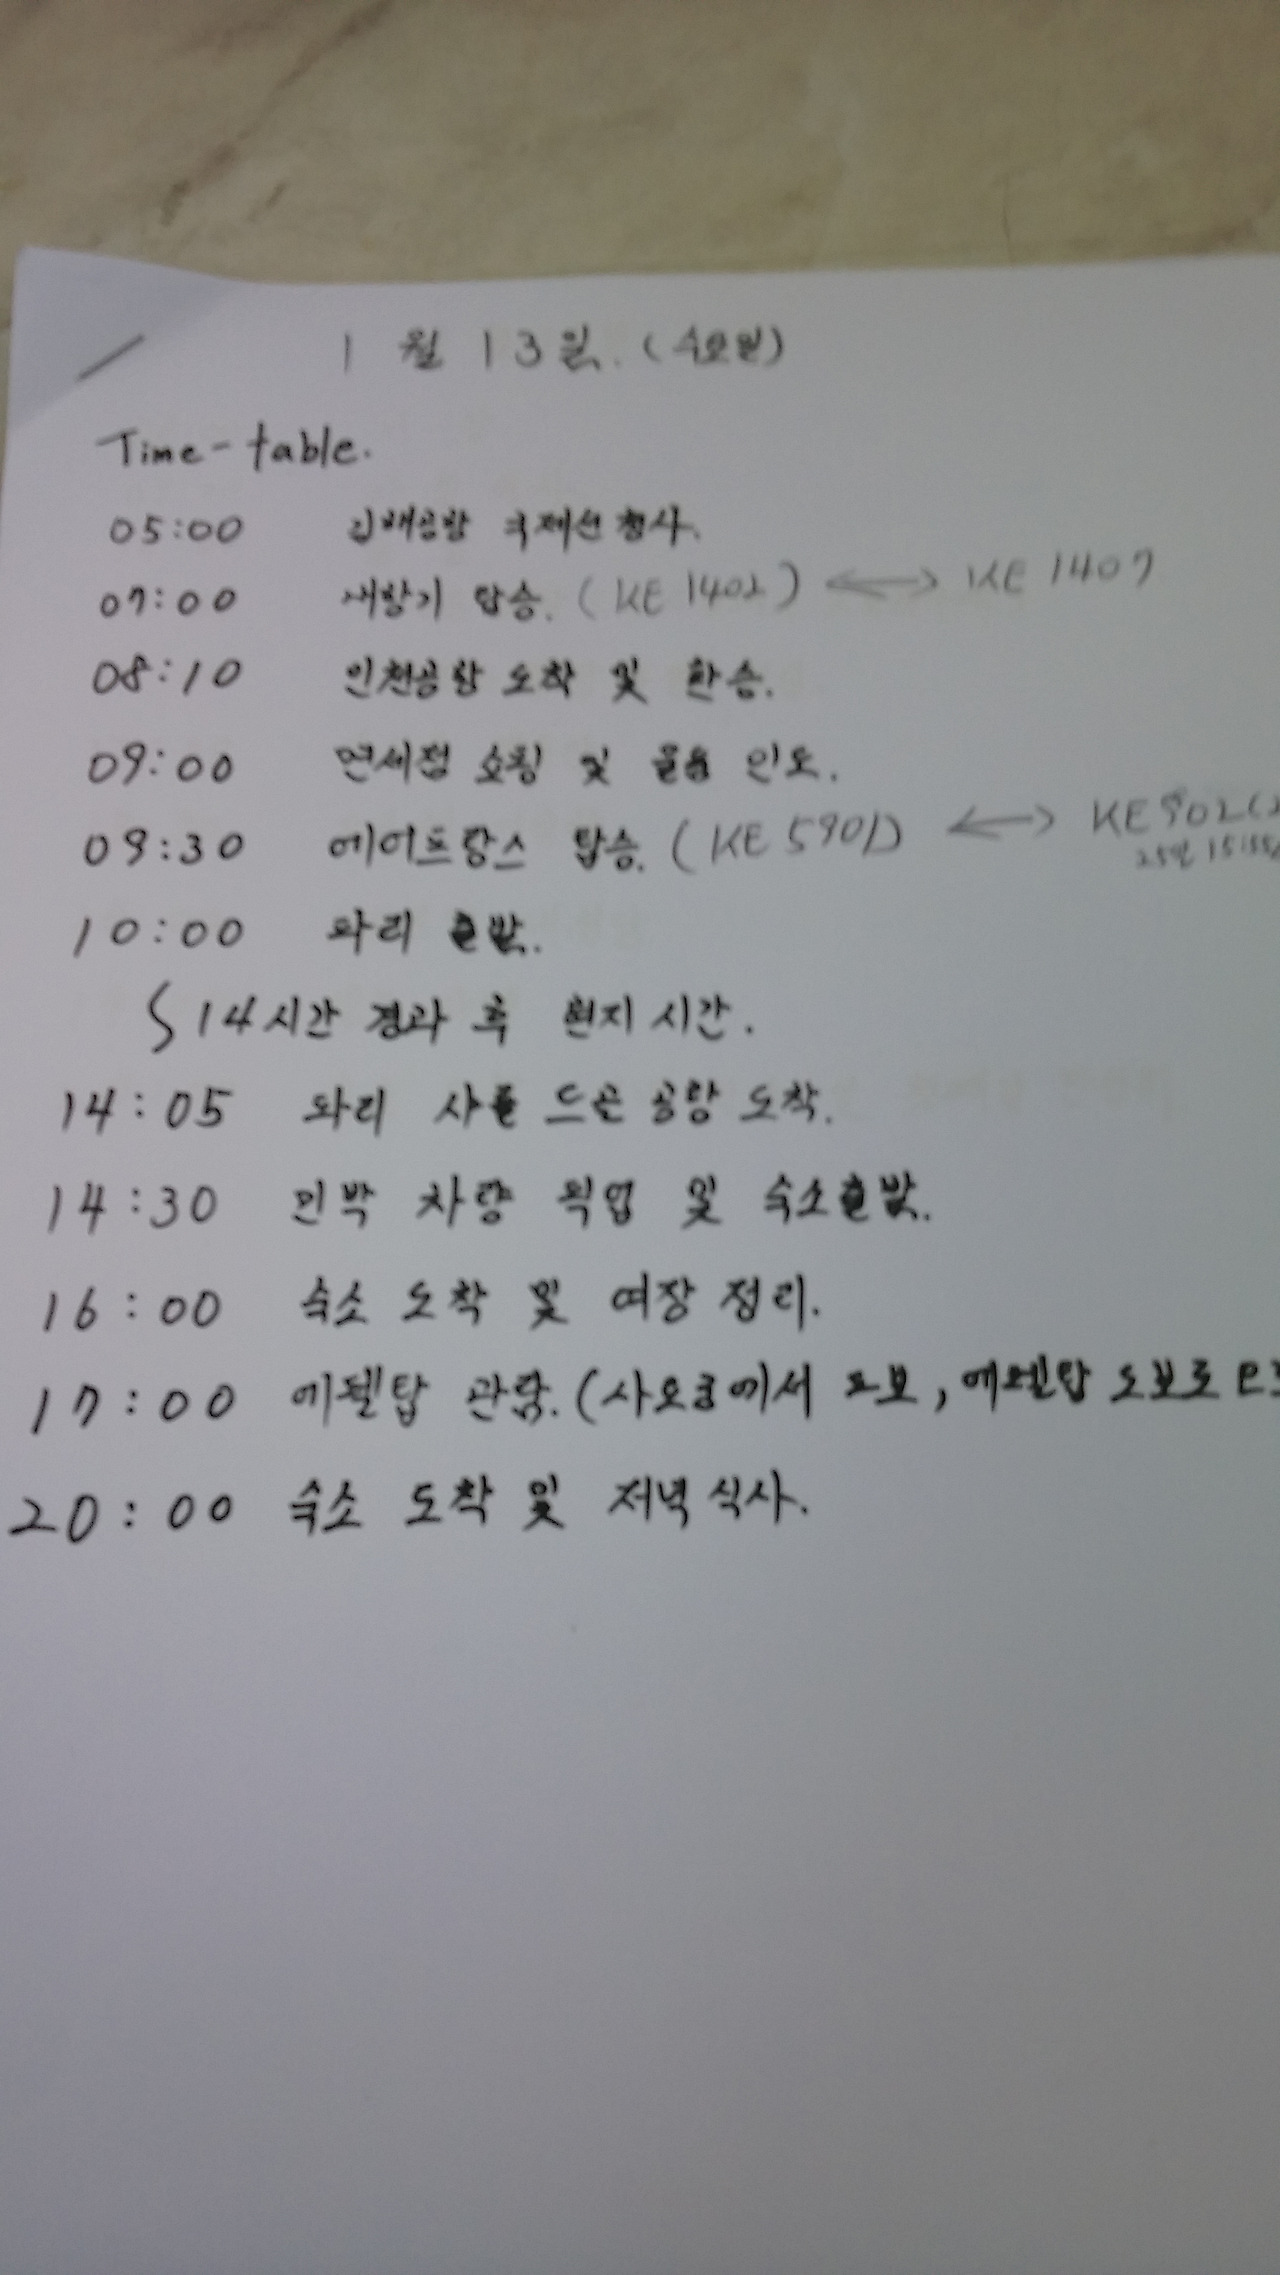 1월 13일. (수요일)
Time-table.
05:00 김해공항 국제선 청사.
07:00 비행기 탑승. (KE 1402) ↔ KE 1407
08:10 인천공항 도착 및 환승.
09:00 면세점 쇼핑 및 물품 인도.
09:30 에어프랑스 탑승. (KE 5901) ↔ KE902
25일 15:55
10:00 파리 출발.
14시간 경과 후 현지 시간.
14:05 파리 샤를 드골 공항 도착.
14:30 민박 차량 픽업 및 숙소출발.
16:00 숙소 도착 및 여장 정리.
17:00 에펠탑 관람. (샤요궁에서 도보, 에펠탑 도보로
20:00 숙소 도착 및 저녁식사.